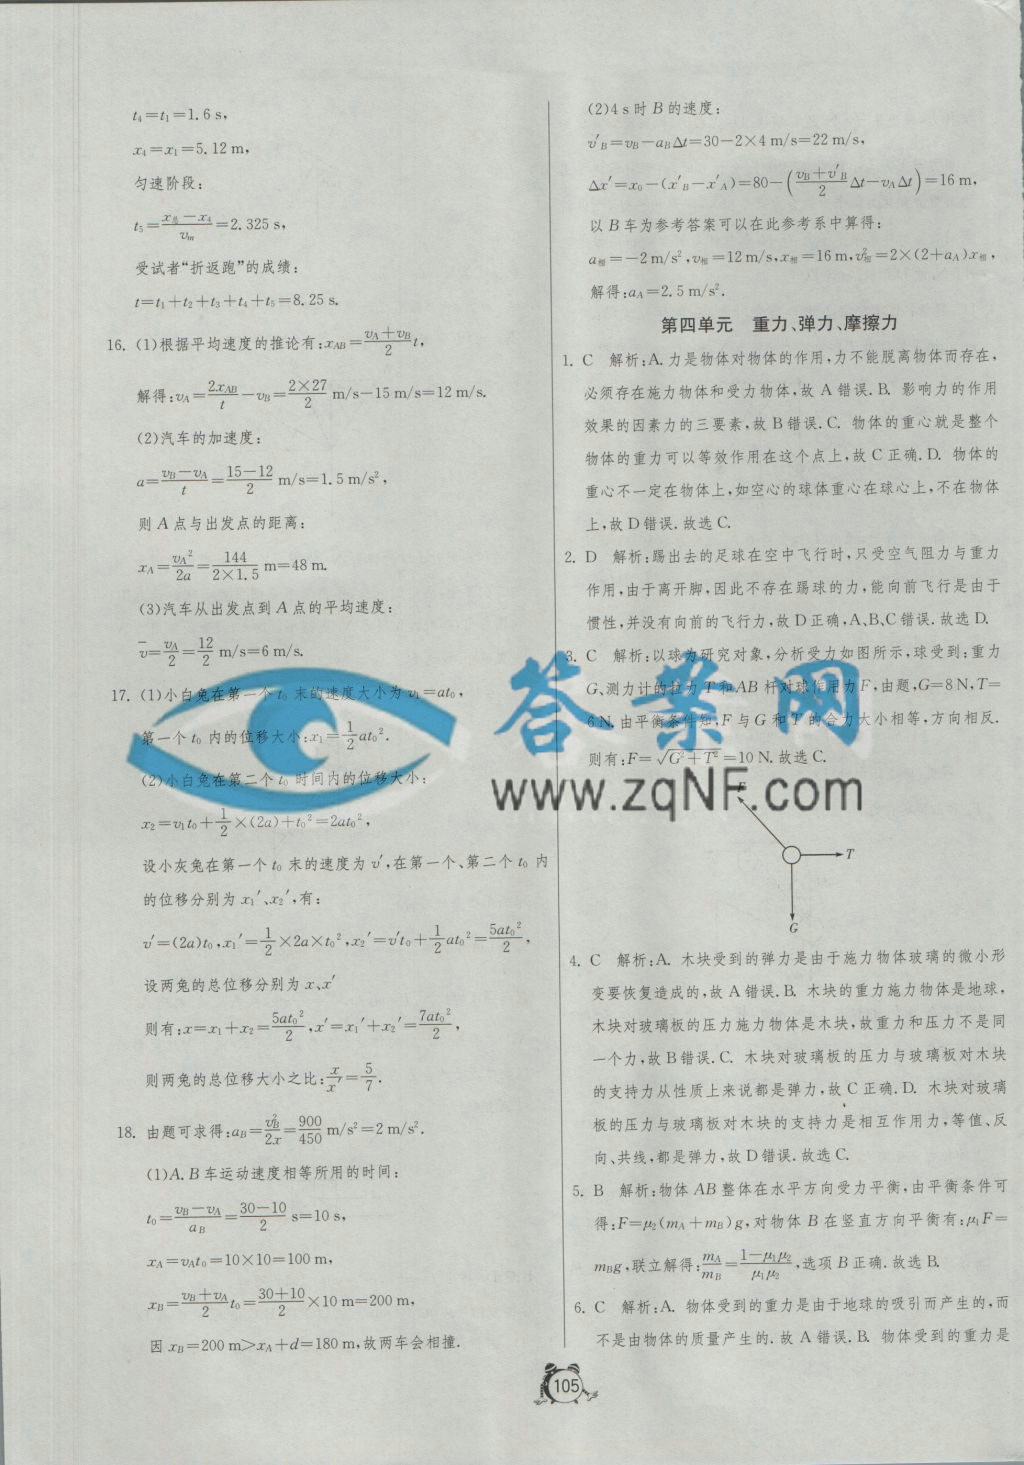 t₄=t₁=1.6 s,
x₄=x₁=5.12 m,
匀速阶段:
t₅=(x总−x₄)/vₘ=2.325 s,
受试者“折返跑”的成绩:
t=t₁+t₂+t₃+t₄+t₅=8.25 s.
16. (1)根据平均速度的推论有:x_AB=(v_A+v_B)/2 t,
解得:v_A=2x_AB/t−v_B=(2×27)/2 m/s−15 m/s=12 m/s.
(2)汽车的加速度:
a=(v_B−v_A)/t=(15−12)/2 m/s=1.5 m/s²,
则 A 点与出发点的距离:
x_A=v_A²/2a=144/(2×1.5) m=48 m.
(3)汽车从出发点到 A 点的平均速度:
v̄=v_A/2=12/2 m/s=6 m/s.
17. (1)小白兔在第一个 t₀ 末的速度大小为 v₁=at₀,
第一个 t₀ 内的位移大小:x₁=1/2 at₀².
(2)小白兔在第二个 t₀ 时间内的位移大小:
x₂=v₁t₀+1/2×(2a)+t₀²=2at₀²,
设小灰兔在第一个 t₀ 末的速度为 v′,在第一个、第二个 t₀ 内
的位移分别为 x₁′、x₂′,有:
v′=(2a)t₀,x₁′=1/2×2a×t₀²,x₂′=v′t₀+1/2 at₀²=5at₀²/2,
设两兔的总位移分别为 x、x′
则有:x=x₁+x₂=5at₀²/2,x′=x₁′+x₂′=7at₀²/2,
则两兔的总位移大小之比:x/x′=5/7.
18. 由题可求得:a_B=v_B²/2x=900/450 m/s²=2 m/s².
(1)A. B 车运动速度相等所用的时间:
t₀=(v_B−v_A)/a_B=(30−10)/2 s=10 s,
x_A=v_At₀=10×10=100 m,
x_B=(v_B+v_A)/2 t₀=(30+10)/2×10 m=200 m,
因 x_B=200 m>x_A+d=180 m,故两车会相撞.
(2)4 s 时 B 的速度:
v′_B=v_B−a_BΔt=30−2×4 m/s=22 m/s,
Δx′=x₀−(x′_B−x′_A)=80−((v_B+v′_B)/2 Δt−v_AΔt)=16 m,
以 B 车为参考答案可以在此参考系中算得:
a相=−2 m/s²,v相=12 m/s,x相=16 m,v相²=2×(2+a_A)x相,
解得:a_A=2.5 m/s².
第四单元 重力、弹力、摩擦力
1. C 解析:A. 力是物体对物体的作用,力不能脱离物体而存在,
必须存在施力物体和受力物体,故 A 错误. B. 影响力的作用
效果的因素力的三要素,故 B 错误. C. 物体的重心就是整个
物体的重力可以等效作用在这个点上,故 C 正确. D. 物体的
重心不一定在物体上,如空心的球体重心在球心上,不在物体
上,故 D 错误. 故选 C.
2. D 解析:踢出去的足球在空中飞行时,只受空气阻力与重力
作用,由于离开脚,因此不存在踢球的力,能向前飞行是由于
惯性,并没有向前的飞行力,故 D 正确,A、B、C 错误. 故选 D.
3. C 解析:以球为研究对象,分析受力如图所示,球受到:重力
G、测力计的拉力 T 和 AB 杆对球作用力 F,由题,G=8 N,T=
6 N. 由平衡条件知,F 与 G 和 T 的合力大小相等,方向相反.
则有:F=√(G²+T²)=10 N. 故选 C.
F
T
G
4. C 解析:A. 木块受到的弹力是由于施力物体玻璃的微小形
变要恢复造成的,故 A 错误. B. 木块的重力施力物体是地球,
木块对玻璃板的压力施力物体是木块,故重力和压力不是同
一个力,故 B 错误. C. 木块对玻璃板的压力与玻璃板对木块
的支持力从性质上来说都是弹力,故 C 正确. D. 木块对玻璃
板的压力与玻璃板对木块的支持力是相互作用力,等值、反
向、共线,都是弹力,故 D 错误. 故选 C.
5. B 解析:物体 AB 整体在水平方向受力平衡,由平衡条件可
得:F=μ₂(m_A+m_B)g,对物体 B 在竖直方向平衡有:μ₁F=
m_Bg,联立解得:m_A/m_B=(1−μ₁μ₂)/(μ₁μ₂),选项 B 正确. 故选 B.
6. C 解析:A. 物体受到的重力是由于地球的吸引而产生的,而
不是由物体的质量产生的. 故 A 错误. B. 物体受到的重力是
105
答案网
www.zqNF.com